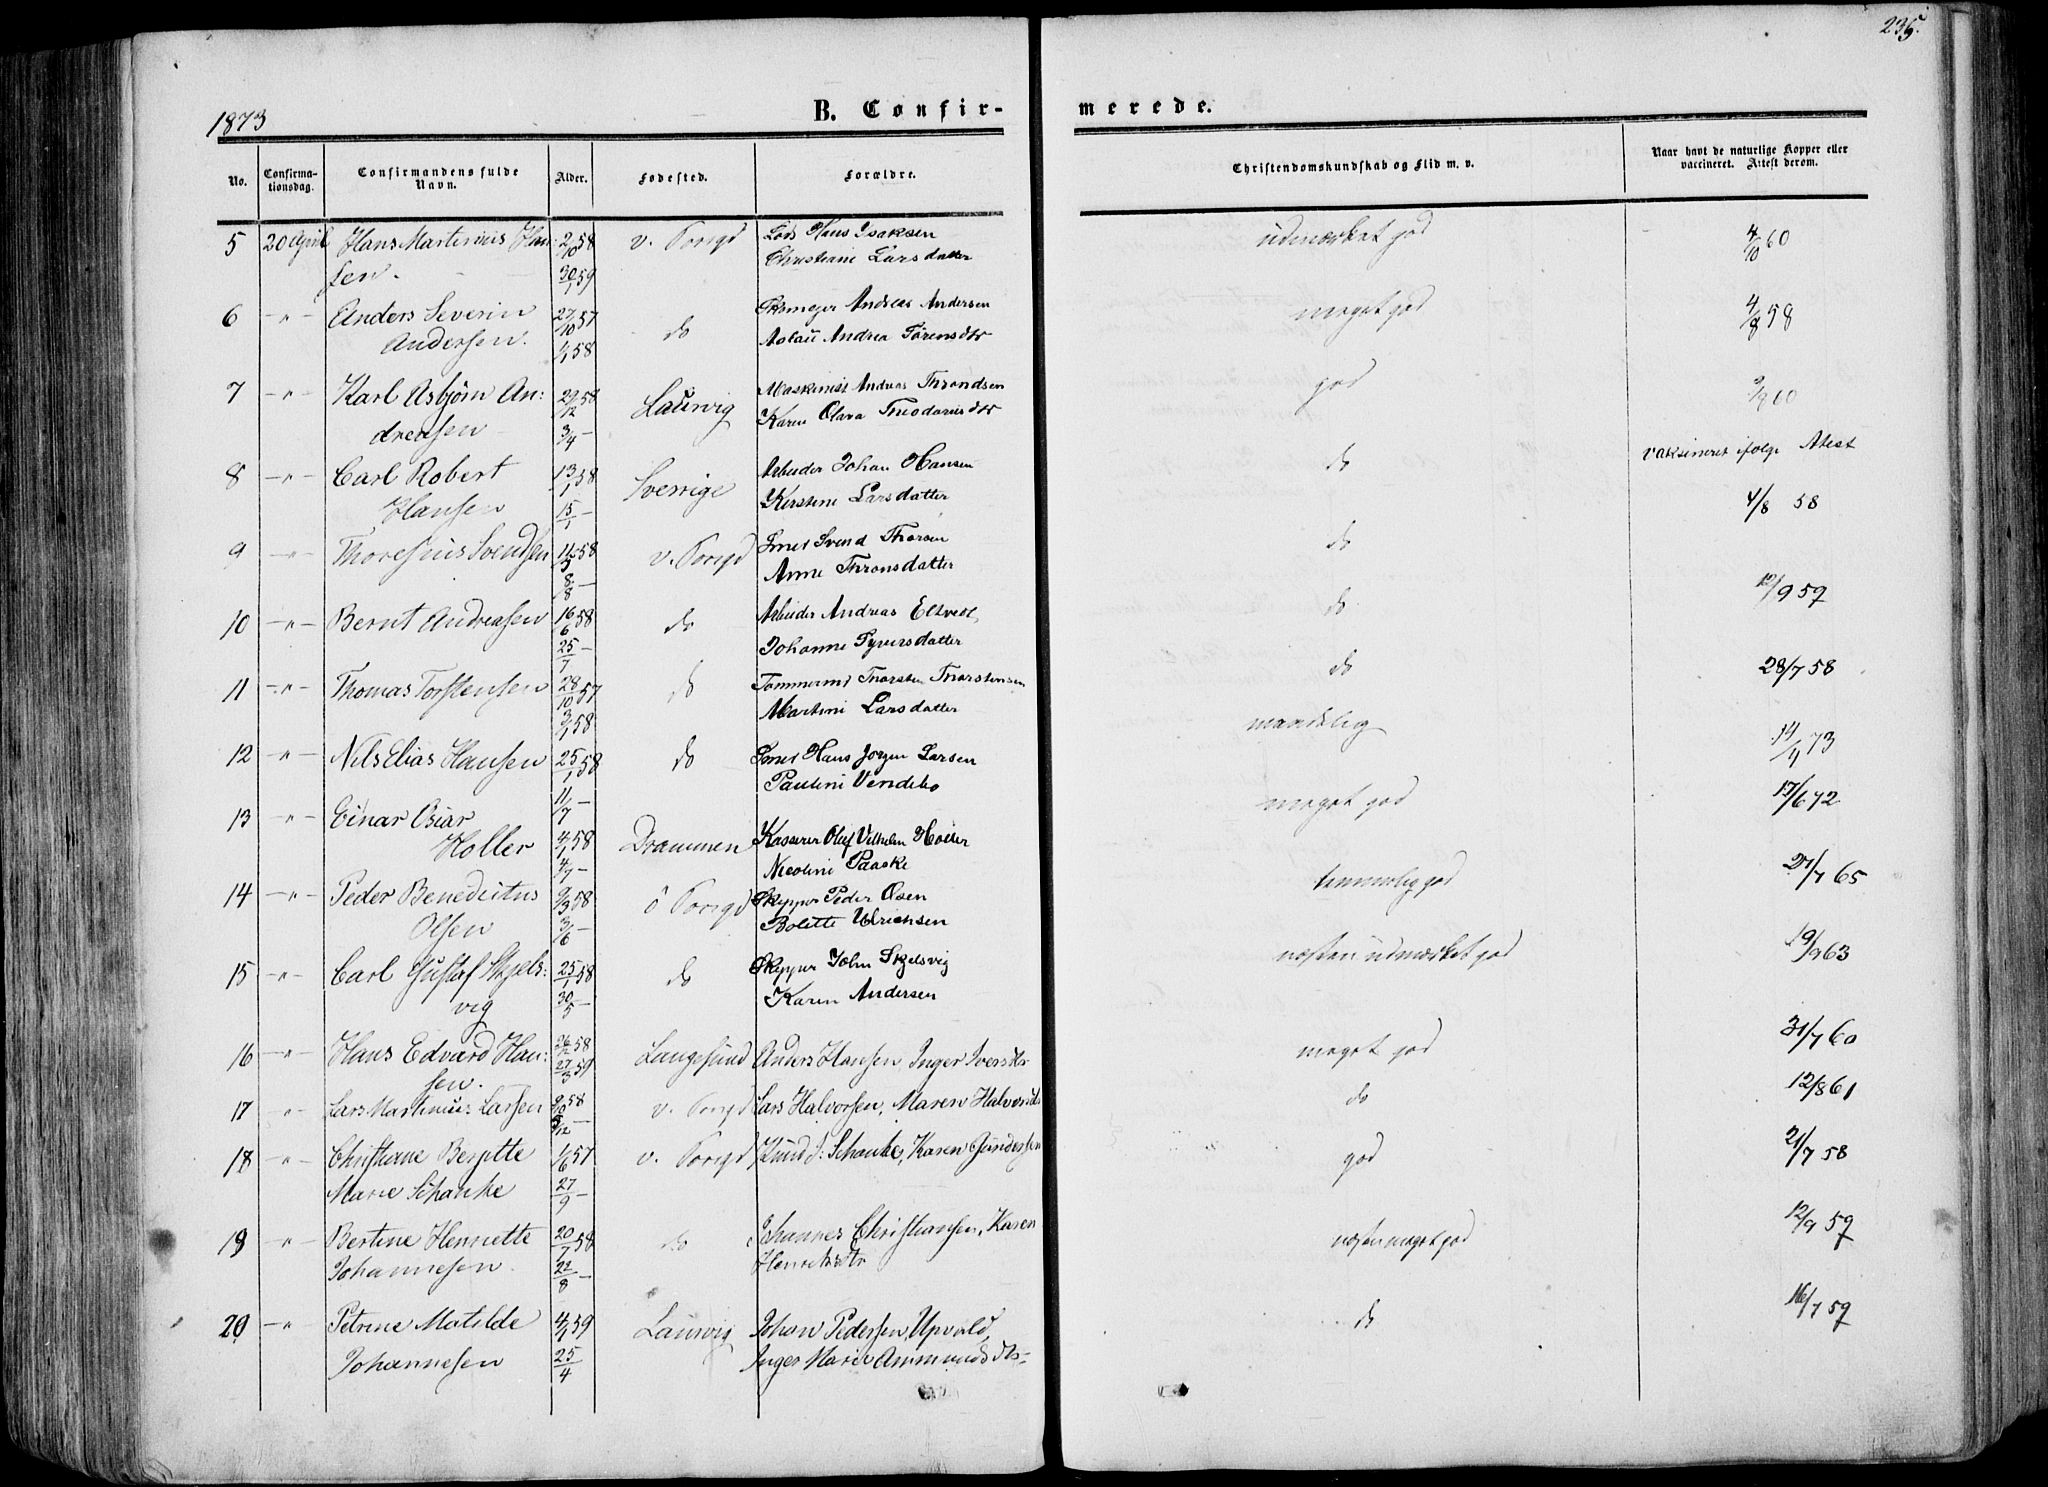 235.
1873
B. Confir-
merede.
No.
Confirma-
tionsdag.
Confirmandens fulde
Navn.
Alder.
Fødested.
Forældre.
Christendomskundskab og Flid m. v.
Naar havt de naturlige Kopper eller
vaccineret. Attest derom.
5 20 April Hans Martinius Han: 2/10 58 v. Porsgd Lods Hans Isaksen udmærket god 4/10 60
sen. 30/1 59 Christiane Larsdatter
6 -"- Anders Severin 27/10 57 do Andreas Andersen meget god 4/8 58
Andersen. 1/1 58 Andrea
7 -"- Karl Asbjørn An: 29/12 58 Laurvig Maskinist Andreas Throndsen god 60
dreasen 3/4 - Karen Olava Theodorusdtr
8 -"- Carl Robert 13/1 58 Sverrige Arbeider Johan Hansen do Vaksineret ifølge Atest
Hansen 15/1 - Kirstine Larsdatter
9 -"- Thoresius Svendsen 58 v. Porsgd Svend Thorsen do 4/8 58
8/8 - Anne Thronsdatter
10 -"- Bernt Andreasen 16/6 58 do Arbeider Andreas do 12/9 59
25/7 - Johanne
11 -"- Thomas Torstensen 28/10 57 do Tømmermd Thorsten Thorstensen do 28/7 58
3/1 58 Martini Larsdatter
12 -"- Nils Elias Hansen 25/1 58 do Hans Jørgen Larsen maadelig 73
11/7 - Paulini Vendebo
13 -"- Einar Oscar
Holler 4/1 58 Drammen Kasserer Oluf Vilhelm Holler meget god 17/6 72
4/7 - Nicolini Paaske
14 -"- Peder Benedictus 9/3 58 ö Porsgd Skypper Peder Olsen temmelig god 27/7 65
Olsen 3/6 - Bolette Ulrichsen
15 -"- Carl Gustaf Skjels: 25/1 58 do Skypper John Skjelsvig næsten udmærket god 19/9 63
vig 30/5 - Karen Andersen
16 -"- Hans Edvard Han: 26/12 58 Langesund Anders Hansen, Inger Iversdtr meget god 31/7 60
sen. 27/3 59
17 -"- Lars Martinius Larsen 9/10 58 v. Porsgd Lars Halvorsen, Maren Halvorsdtr do 12/8 61
18 -"- Christiane Bergitte 1/6 57 v. Porsgd Knud J: Schanke, Karen Gundersen god 21/7 58
Marie Schanke 27/9 -
19 -" Bertine Henriette 20/7 58 do Johannes Christiansen, Karen næsten meget god 12/9 59
Johannesen. 22/8 - Henriksdtr
20 -"- Petrine Matilde 4/1 59 Laurvig Johan Pedersen, Upvald, do 16/7 59
Johannesen 25/4 Inger Marie Ammundsdtr